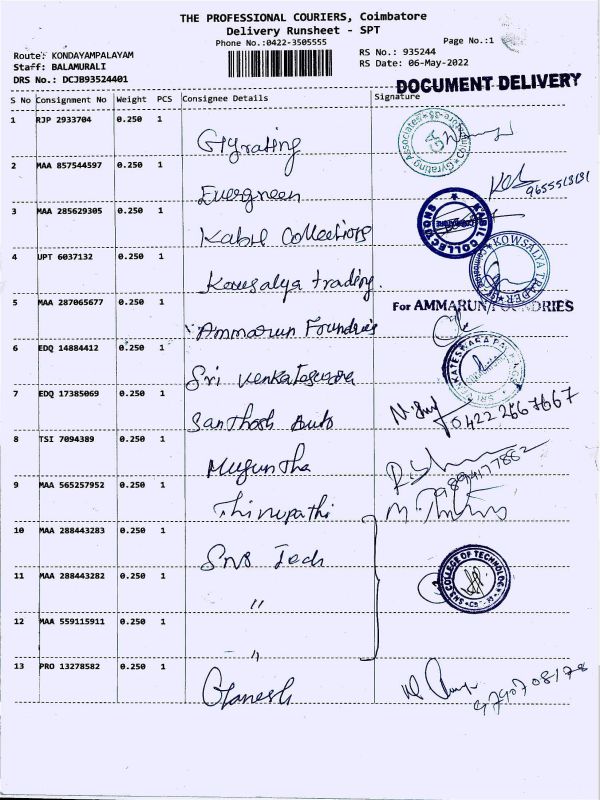 THE PROFESSIONAL COURIERS, Coimbatore
Delivery Runsheet - SPT
Phone No.:0422-3505555
Page No.:1
Route: KONDAYAMPALAYAM
RS No.: 935244
Staff: BALAMURALI
RS Date: 06-May-2022
DRS No.: DCJB93524401
DOCUMENT DELIVERY
S No Consignment No Weight PCS Consignee Details Signature
1 RJP 2933704 0.250 1 Gyrating
Gyrating Associates
2 MAA 857544597 0.250 1 Evergreen
9655513131
3 MAA 285629305 0.250 1 Kabil Collections
KABIL COLLECTIONS
4 UPT 6037132 0.250 1 Kowsalya trading.
KOWSALYA TRADER
5 MAA 287065677 0.250 1 Ammarun Foundries
For AMMARUN FOUNDRIES
6 EDQ 14884412 0.250 1 Sri Venkateswara
7 EDQ 17385069 0.250 1 Santhosh Auto
0422 2667667
8 TSI 7094389 0.250 1 Muguntha
9894177882
9 MAA 565257952 0.250 1 Thirupathi
10 MAA 288443283 0.250 1 SNS Tech
11 MAA 288443282 0.250 1 "
SNS COLLEGE OF TECHNOLOGY
12 MAA 559115911 0.250 1 "
13 PRO 13278582 0.250 1 Ganesh
9790708178